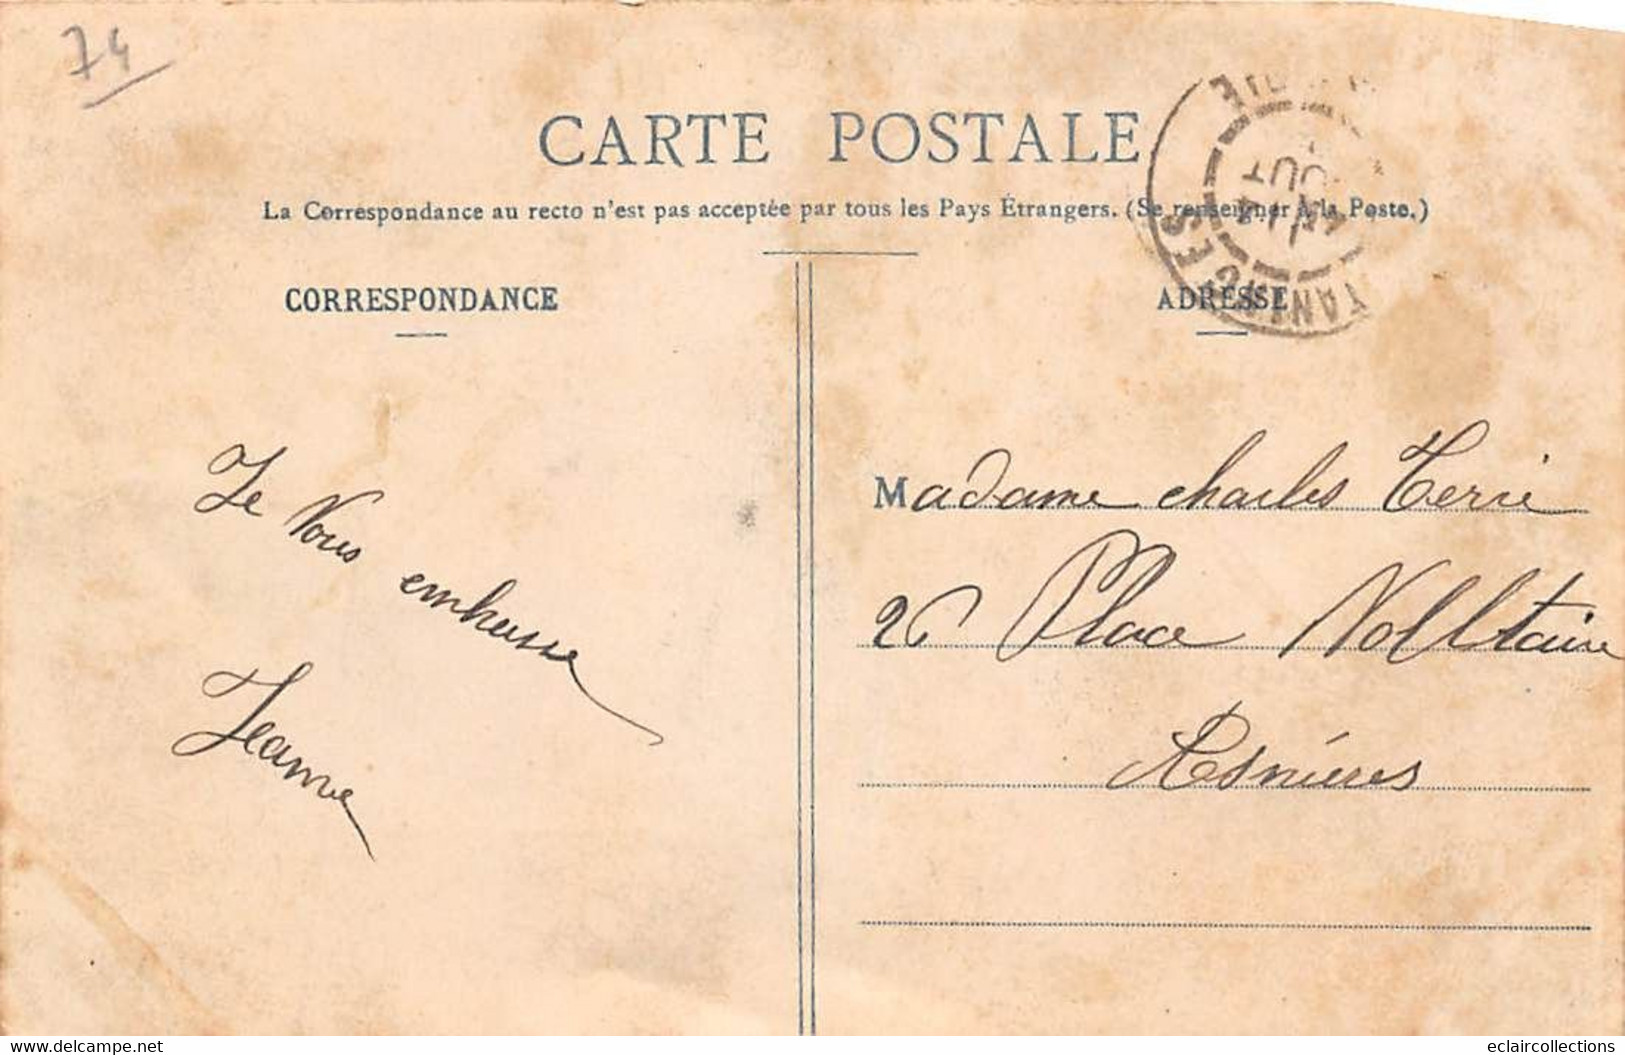 74
CARTE POSTALE
La Correspondance au recto n'est pas acceptée par tous les Pays Étrangers. (Se renseigner à la Poste.)
CORRESPONDANCE
ADRESSE
Je vous embrasse
Jeanne
Madame Charles Terrié
26 Place Volltaire
Asnières
www.delcampe.net
eclaircollections